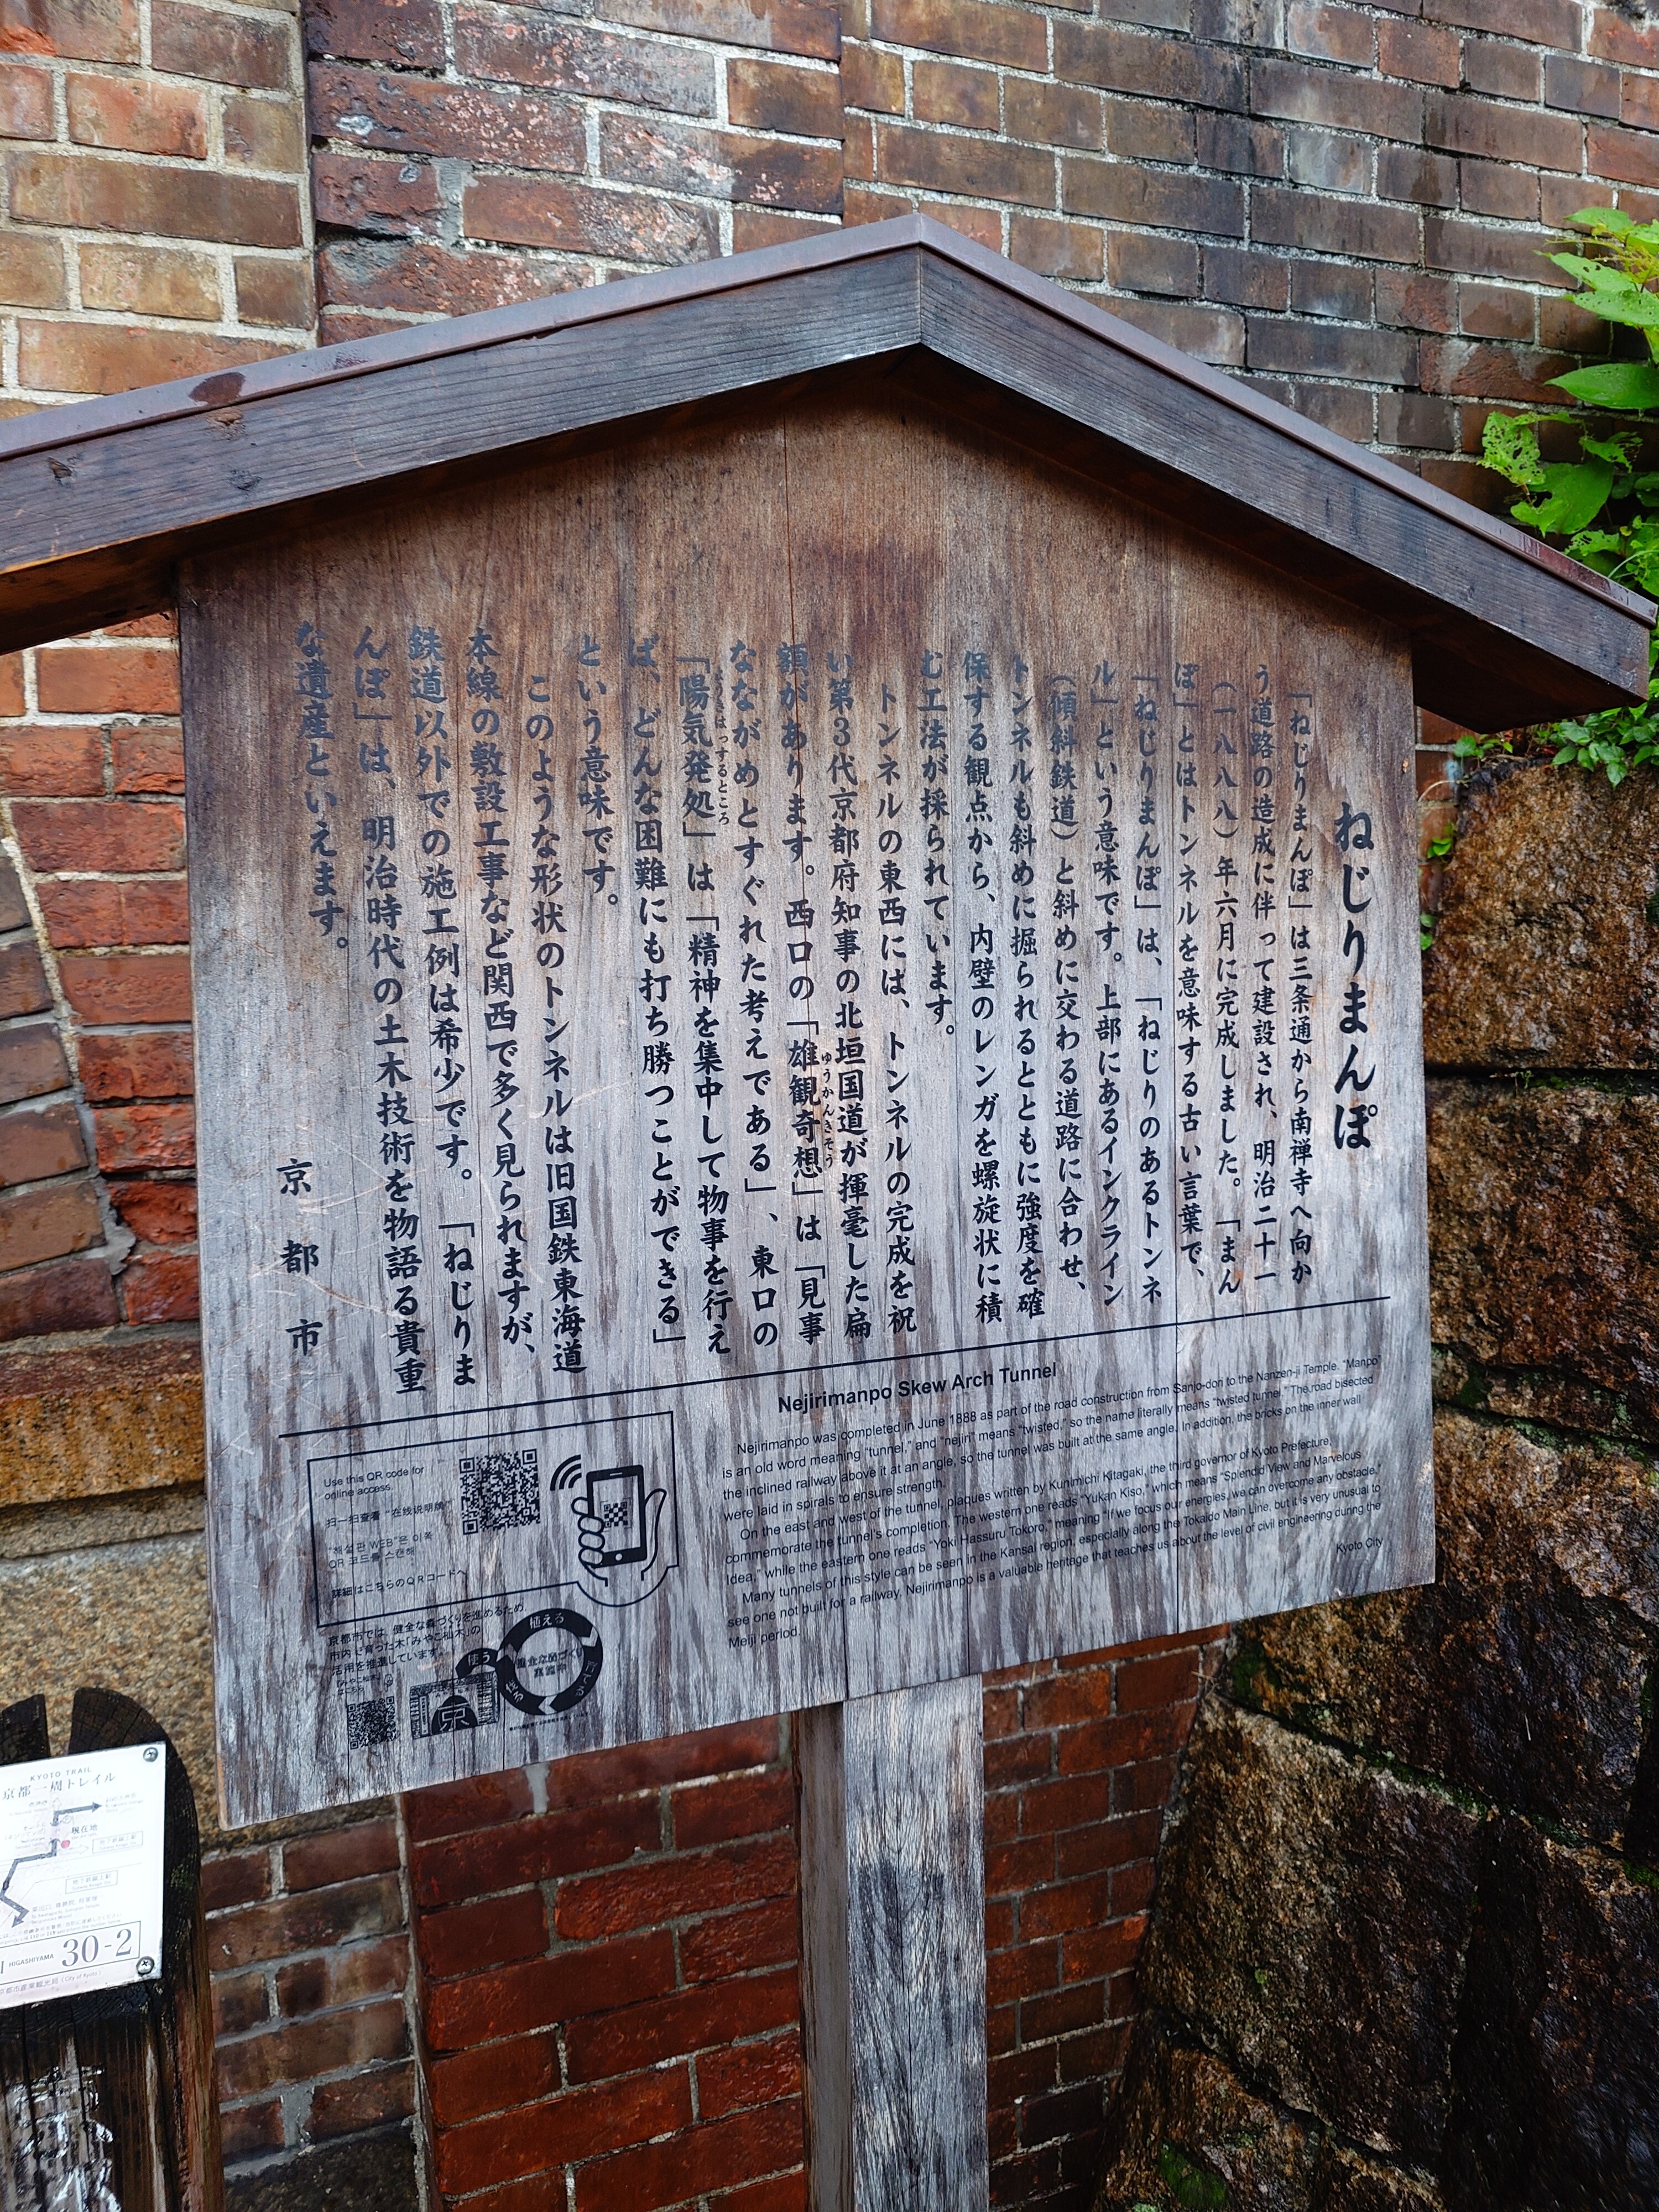 ねじりまんぽ
「ねじりまんぽ」は三条通から南禅寺へ向か
う道路の造成に伴って建設され、明治二十一
（一八八八）年六月に完成しました。「まん
ぽ」とはトンネルを意味する古い言葉で、
「ねじりまんぽ」は、「ねじりのあるトンネ
ル」という意味です。上部にあるインクライン
（傾斜鉄道）と斜めに交わる道路に合わせ、
トンネルも斜めに掘られるとともに強度を確
保する観点から、内壁のレンガを螺旋状に積
む工法が採られています。
トンネルの東西には、トンネルの完成を祝
い第3代京都府知事の北垣国道が揮毫した扁
額があります。西口の「雄観奇想」は「見事
ゆうかんきそう
なながめとすぐれた考えである」、東口の
「陽気発処」は「精神を集中して物事を行え
ようきはっするところ
ば、どんな困難にも打ち勝つことができる」
という意味です。
このような形状のトンネルは旧国鉄東海道
本線の敷設工事など関西で多く見られますが、
鉄道以外での施工例は希少です。「ねじりま
んぽ」は、明治時代の土木技術を物語る貴重
な遺産といえます。
京都市
Nejirimanpo Skew Arch Tunnel
Nejirimanpo was completed in June 1888 as part of the road construction from Sanjo-don to the Nanzen-ji Temple. "Manpo"
is an old word meaning "tunnel," and "nejiri" means "twisted," so the name literally means "twisted tunnel." The road bisected
the inclined railway above it at an angle, so the tunnel was built at the same angle. In addition, the bricks on the inner wall
were laid in spirals to ensure strength.
On the east and west of the tunnel, plaques written by Kunimichi Kitagaki, the third governor of Kyoto Prefecture,
commemorate the tunnel's completion. The western one reads "Yukan Kiso," which means "Splendid View and Marvelous
Idea," while the eastern one reads "Yoki Hassuru Tokoro," meaning "If we focus our energies, we can overcome any obstacle."
Many tunnels of this style can be seen in the Kansai region, especially along the Tokaido Main Line, but it is very unusual to
see one not built for a railway. Nejirimanpo is a valuable heritage that teaches us about the level of civil engineering during the
Meiji period.
Kyoto City
Use this QR code for
online access.
扫一扫查看 "在线说明牌"
"해설판 WEB"은 이쪽
QR 코드를 스캔해
詳細はこちらのQRコードへ
京都市では、健全な森づくりを進めるため、
市内で育った木「みやこ杣木」の
活用を推進しています。
植える
使う
KYOTO TRAIL
京都一周トレイル
現在地
HIGASHIYAMA 30-2
(City of Kyoto)